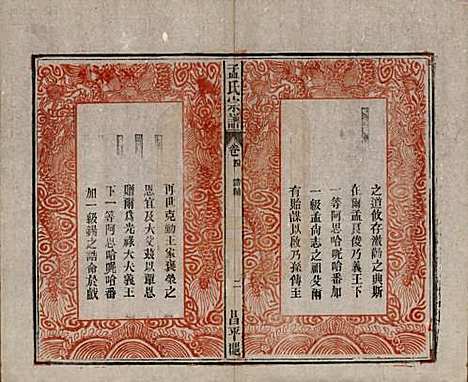 之道攸存激勸之典斯
在爾孟良俊乃義王下
一等阿思哈呢哈番加
一級孟尚志之祖父爾
有貽謀以啟乃孫傳主
孟氏宗譜
卷四
誥勅
二
昌平
再世克勤王家褒榮之
恩宜及大父茲以覃恩
贈爾爲光祿大夫義王
下一等阿思哈呢哈番
加一級錫之誥命於戲